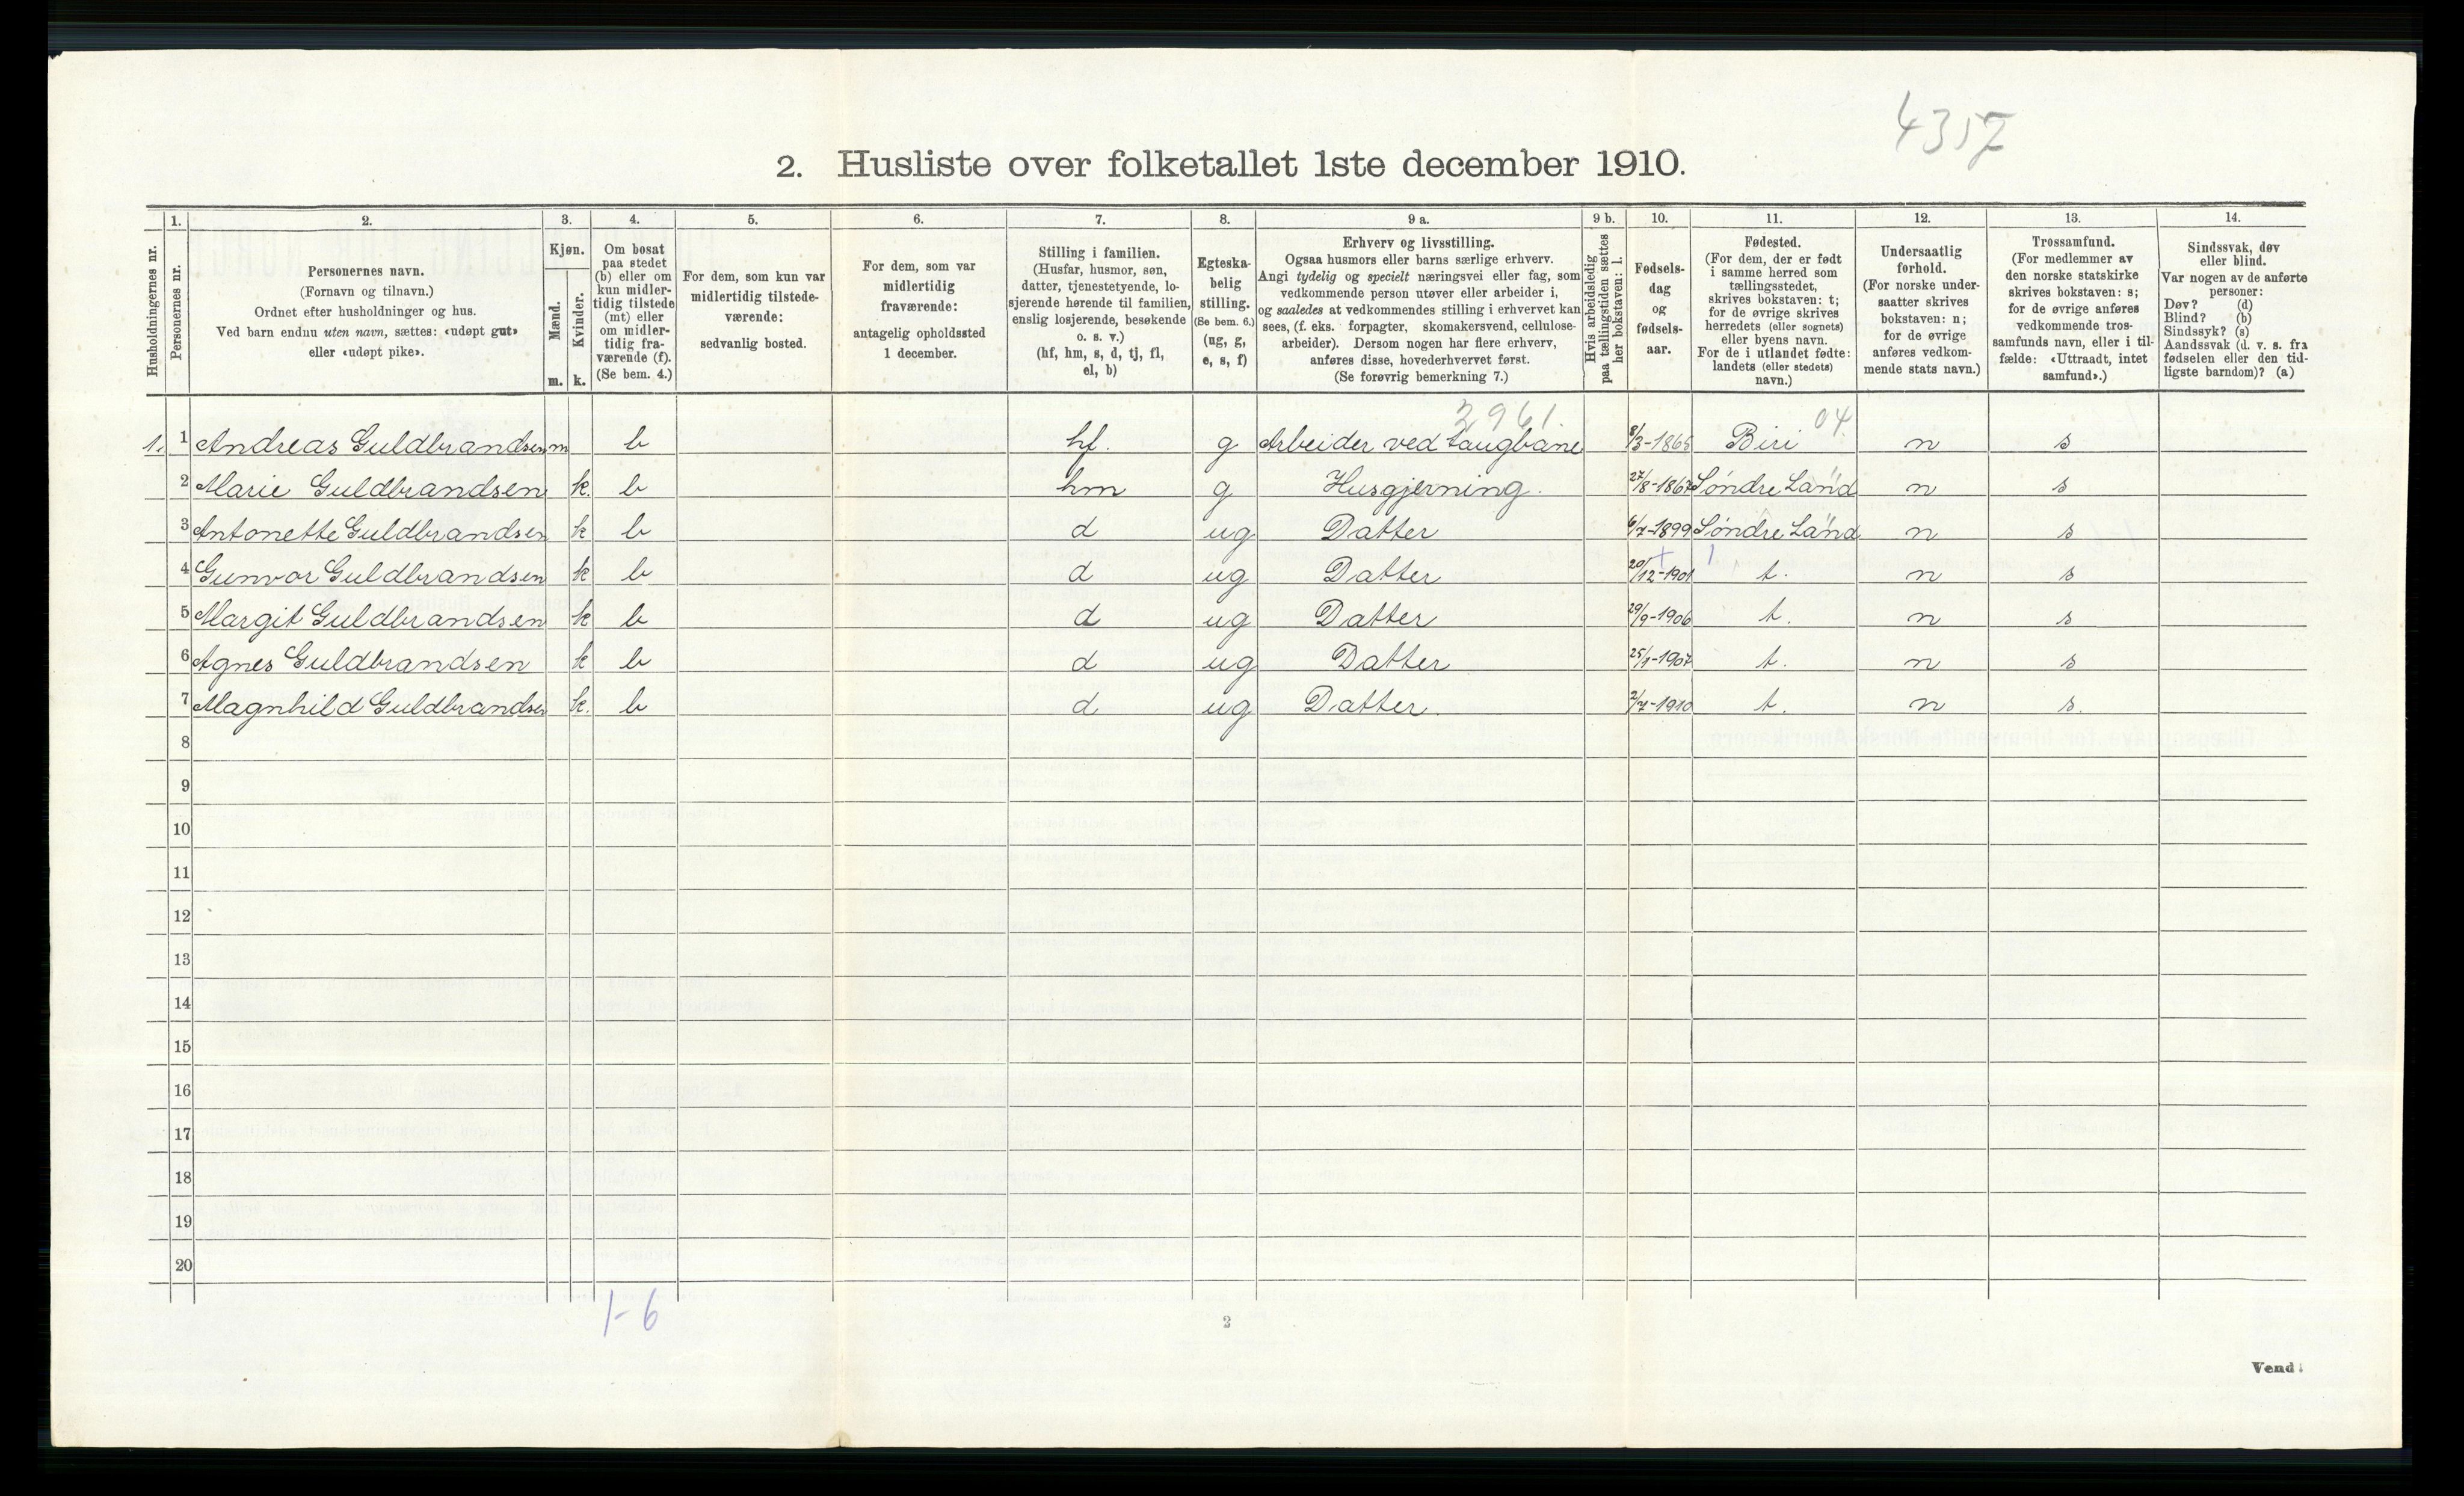 4357
2. Husliste over folketallet 1ste december 1910.
1. 2. 3. 4. 5. 6. 7. 8. 9 a. 9 b. 10. 11. 12. 13. 14.
Husholdningernes nr.
Personernes nr.
Personernes navn.
(Fornavn og tilnavn.)
Ordnet efter husholdninger og hus.
Ved barn endnu uten navn, sættes: «udøpt gut»
eller «udøpt pike».
Kjøn.
Mænd.
m.
Kvinder.
k.
Om bosat
paa stedet
(b) eller om
kun midler-
tidig tilstede
(mt) eller
om midler-
tidig fra-
værende (f).
(Se bem. 4.)
For dem, som kun var
midlertidig tilstede-
værende:
sedvanlig bosted.
For dem, som var
midlertidig
fraværende:
antagelig opholdssted
1 december.
Stilling i familien.
(Husfar, husmor, søn,
datter, tjenestetyende, lo-
sjerende hørende til familien,
enslig losjerende, besøkende
o. s. v.)
(hf, hm, s, d, tj, fl,
el, b)
Egteska-
belig
stilling.
(Se bem. 6.)
(ug, g,
e, s, f)
Erhverv og livsstilling.
Ogsaa husmors eller barns særlige erhverv.
Angi tydelig og specielt næringsvei eller fag, som
vedkommende person utøver eller arbeider i,
og saaledes at vedkommendes stilling i erhvervet kan
sees, (f. eks. forpagter, skomakersvend, cellulose-
arbeider). Dersom nogen har flere erhverv,
anføres disse, hovederhvervet først.
(Se forøvrig bemerkning 7.)
Hvis arbeidsledig
paa tællingstiden sættes
her bokstaven: l.
Fødsels-
dag
og
fødsels-
aar.
Fødested.
(For dem, der er født
i samme herred som
tællingsstedet,
skrives bokstaven: t;
for de øvrige skrives
herredets (eller sognets)
eller byens navn.
For de i utlandet fødte:
landets (eller stedets)
navn.)
Undersaatlig
forhold.
(For norske under-
saatter skrives
bokstaven: n;
for de øvrige
anføres vedkom-
mende stats navn.)
Trossamfund.
(For medlemmer av
den norske statskirke
skrives bokstaven: s;
for de øvrige anføres
vedkommende tros-
samfunds navn, eller i til-
fælde: «Uttraadt, intet
samfund».)
Sindssvak, døv
eller blind.
Var nogen av de anførte
personer:
Døv? (d)
Blind? (b)
Sindssyk? (s)
Aandssvak (d. v. s. fra
fødselen eller den tid-
ligste barndom)? (a)
2961. 04
1. 1 Andreas Guldbrandsen m b hf. g Arbeider ved taugbane 8/3-1865 Biri n s
2 Marie Guldbrandsen k. b hm g Husgjerning. 27/8-1867 Søndre Land n s
3 Antonette Guldbrandsen k b d ug Datter 6/7-1899 Søndre Land n s
4 Gunvor Guldbrandsen k b d ug Datter 20/12-1901 t. n s
5 Margit Guldbrandsen k b d ug Datter 29/9-1906 t. n s
6 Agnes Guldbrandsen k b d ug Datter 25/1-1907 t. n s
7 Magnhild Guldbrandsen k. b d ug Datter. 2/7-1910 t. n s.
8
9
10
11
12
13
14
15
16
17
18
19
20
1-6
2
Vend!